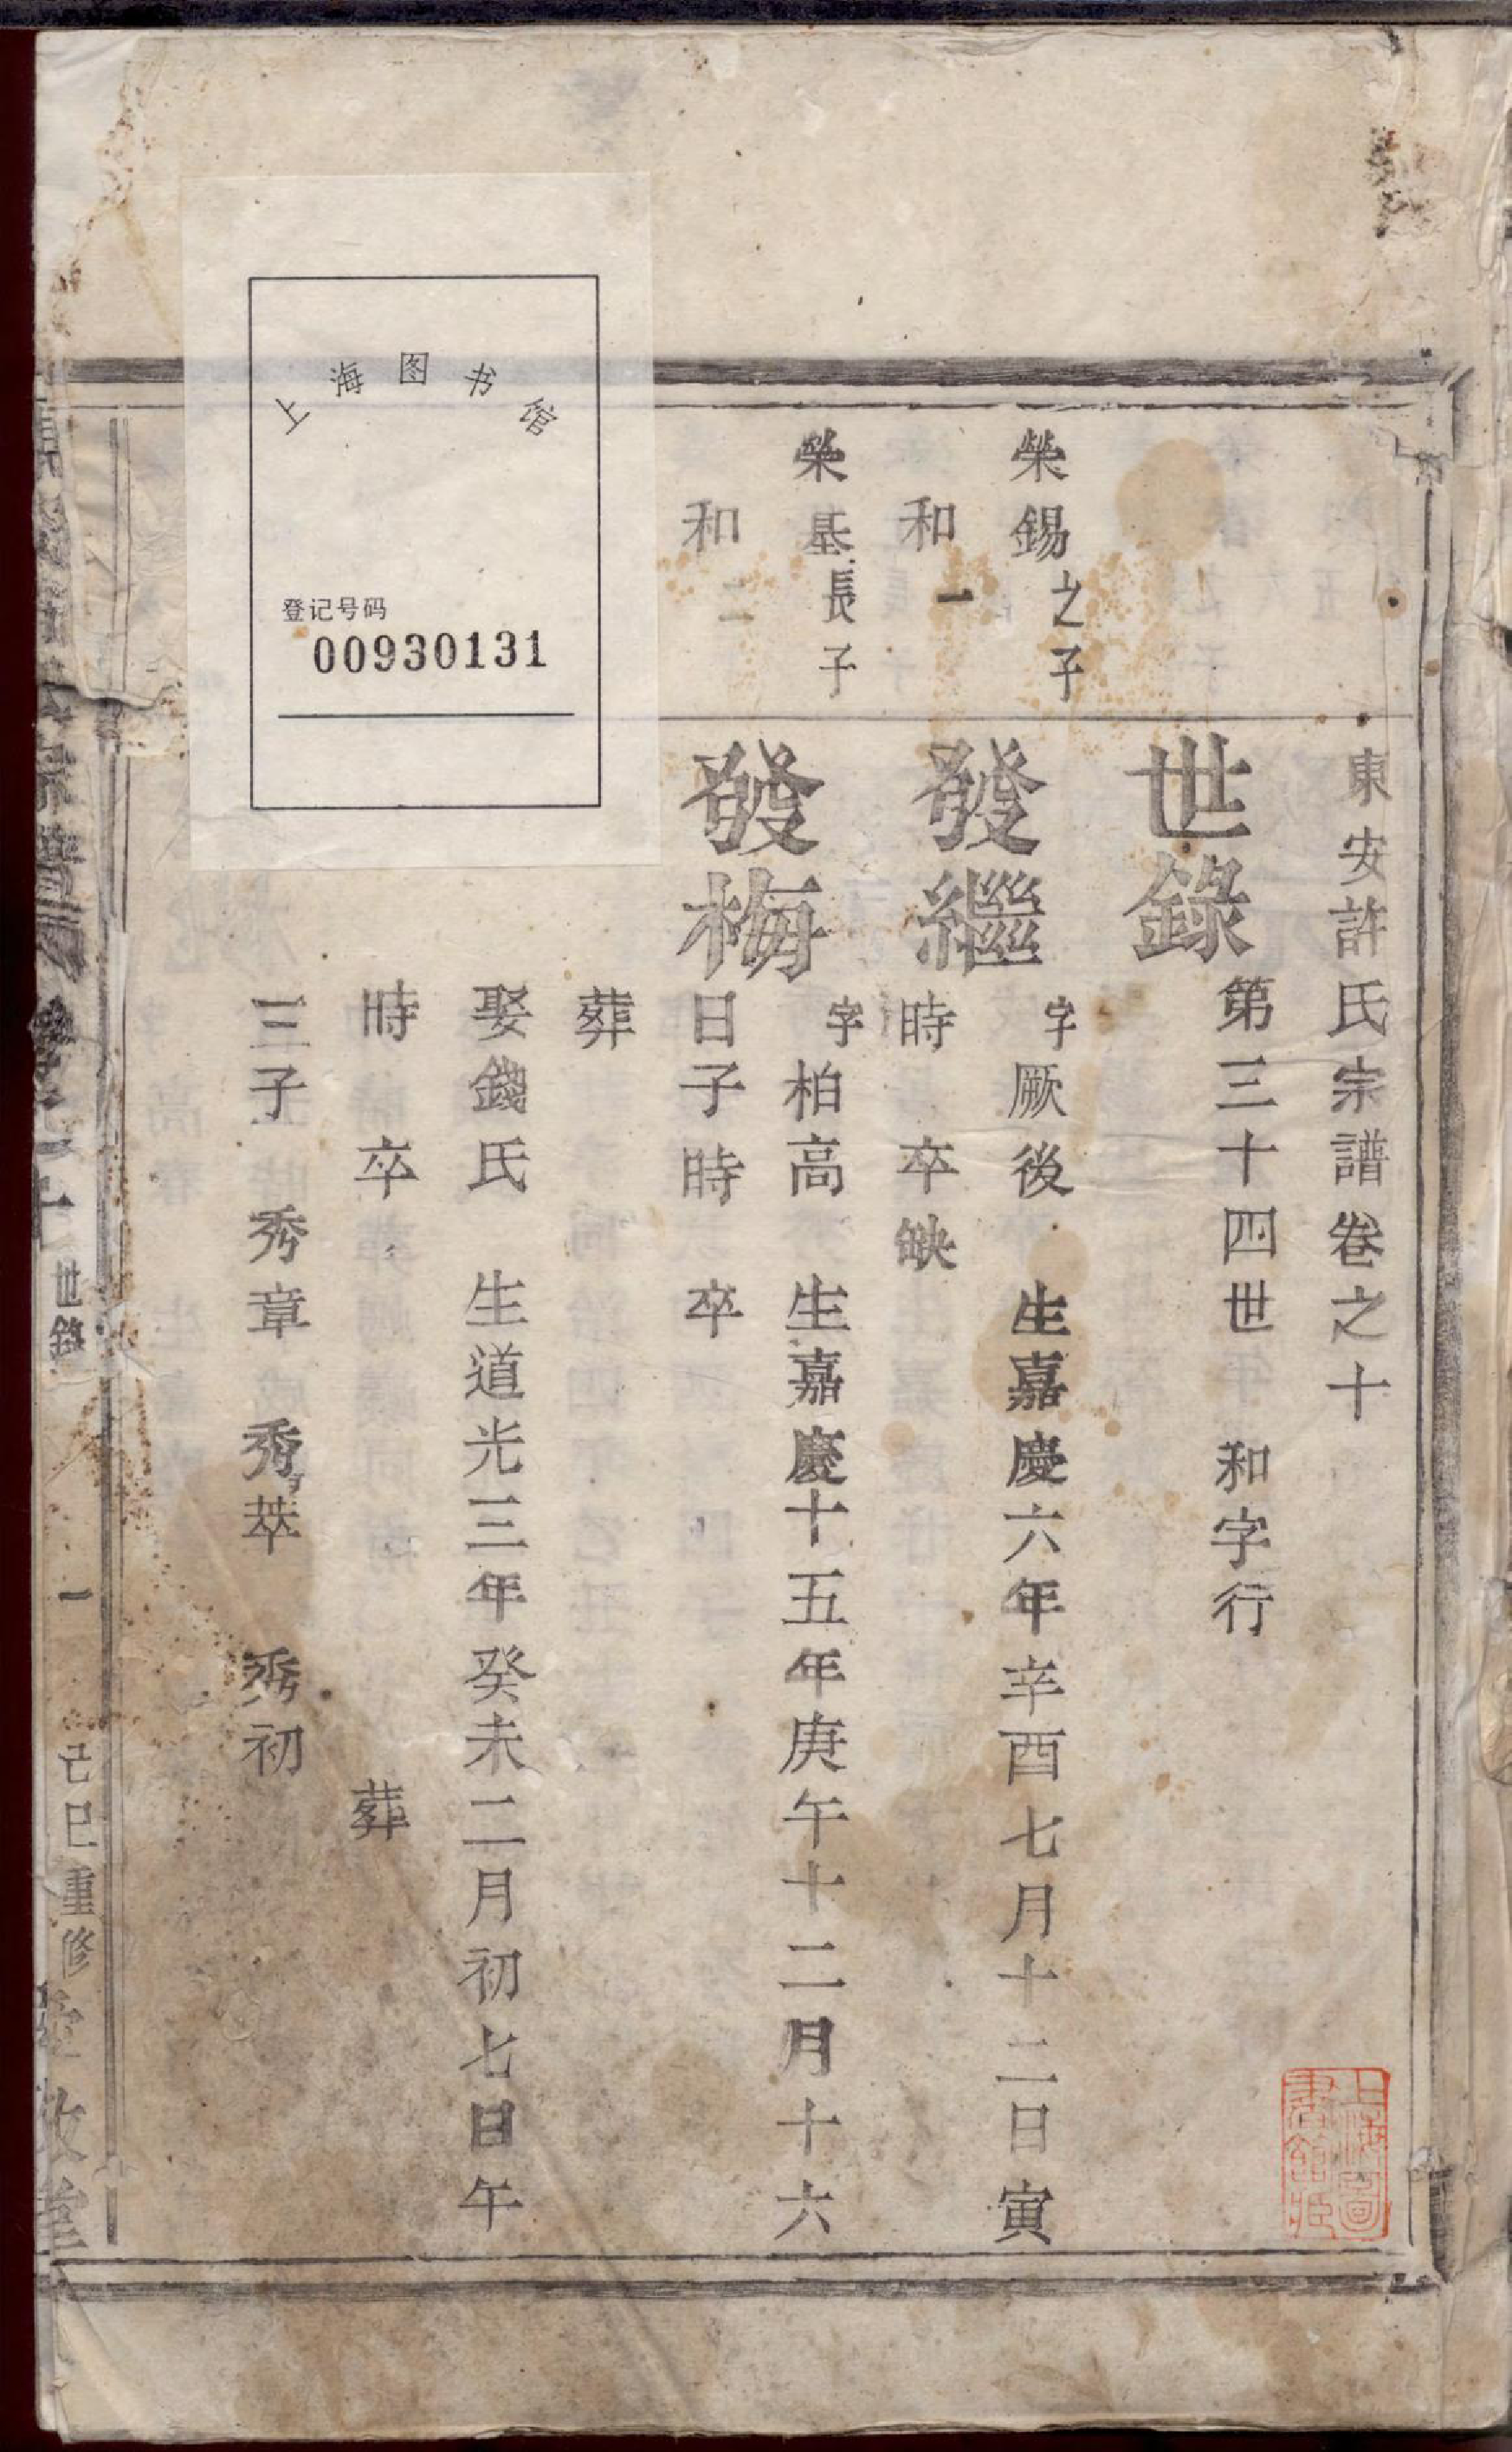 東安許氏宗譜卷之十
世錄 第三十四世 和字行
榮錫之子
發繼 字厥後 生嘉慶六年辛酉七月十二日寅
和一
時 卒缺
榮基長子
發梅 字柏高 生嘉慶十五年庚午十二月十六
和二
日子時 卒
葬
娶錢氏 生道光三年癸未二月初七日午
時 卒 葬
三子 秀章 秀萃 秀初
世錄 一 己巳重修
上海图书馆
登记号码
00930131
上海圖
書館藏